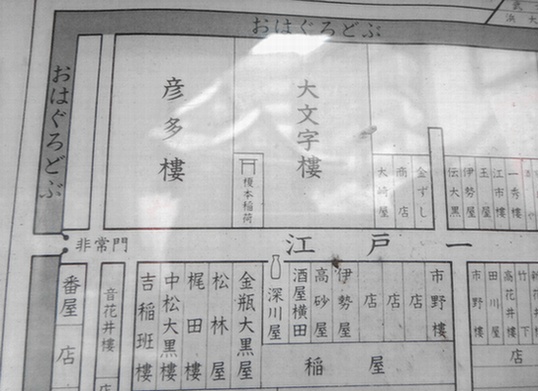 おはぐろどぶ
おはぐろどぶ
彦多樓
榎本稲荷
大文字樓
大崎屋
商店
金ずし
伝大黒
伊勢屋
玉屋
江市樓
一秀樓
非常門
江戸一
番屋
店
音花井樓
店
吉稲班樓
中松大黒樓
梶田樓
松林屋
金瓶大黒屋
深川屋
酒屋横田
高砂屋
伊勢屋
店
店
店
市野樓
稲屋
市野樓
田川屋
高花井樓
竹下
店